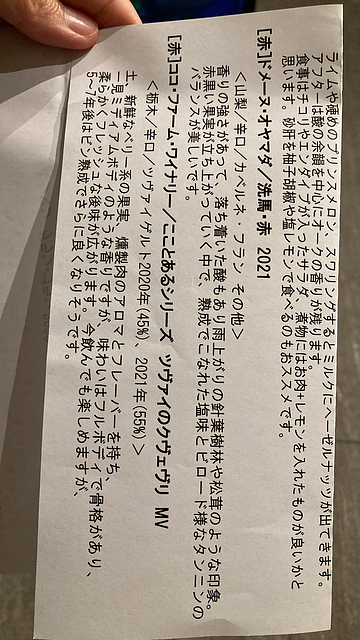 ライムや硬めのプリンスメロン、スワリングするとミルクにヘーゼルナッツが出てきます。
アフターは酸の余韻を中心にオークの香りが残ります。
食事はチコリやエンダイブが入ったサラダ、煮物にはお肉+レモンを入れたものが良いかと
思います。砂肝を柚子胡椒や塩レモンで食べるのもおススメです。
[赤]ドメーヌ・オヤマダ/洗馬・赤 2021
<山梨/辛口/カベルネ・フラン その他>
香りの強さがあって、落ち着いた酸もあり雨上がりの針葉樹林や松茸のような印象。
赤黒い果実が立ち上がっていく中で、熟成でこなれた塩味とビロード様なタンニンの
バランスが美しいです。
[赤]ココ・ファーム・ワイナリー/こことあるシリーズ ツヴァイのクヴェヴリ MV
<栃木/辛口/ツヴァイゲルト2020年(45%)、2021年(55%)>
土、新鮮なベリー系の果実、燻製肉のアロマとフレーバーを持ち、
一見ミディアムボディのような香りですが、味わいはフルボディで骨格があり、
柔らかくフレッシュな後味が広がります。今飲んでも楽しめますが、
5~7年後はビン熟成でさらに良くなりそうです。